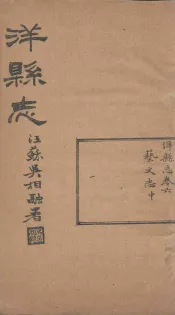 洋縣志
江蘇吳相融署
洋縣志卷六
藝文志中